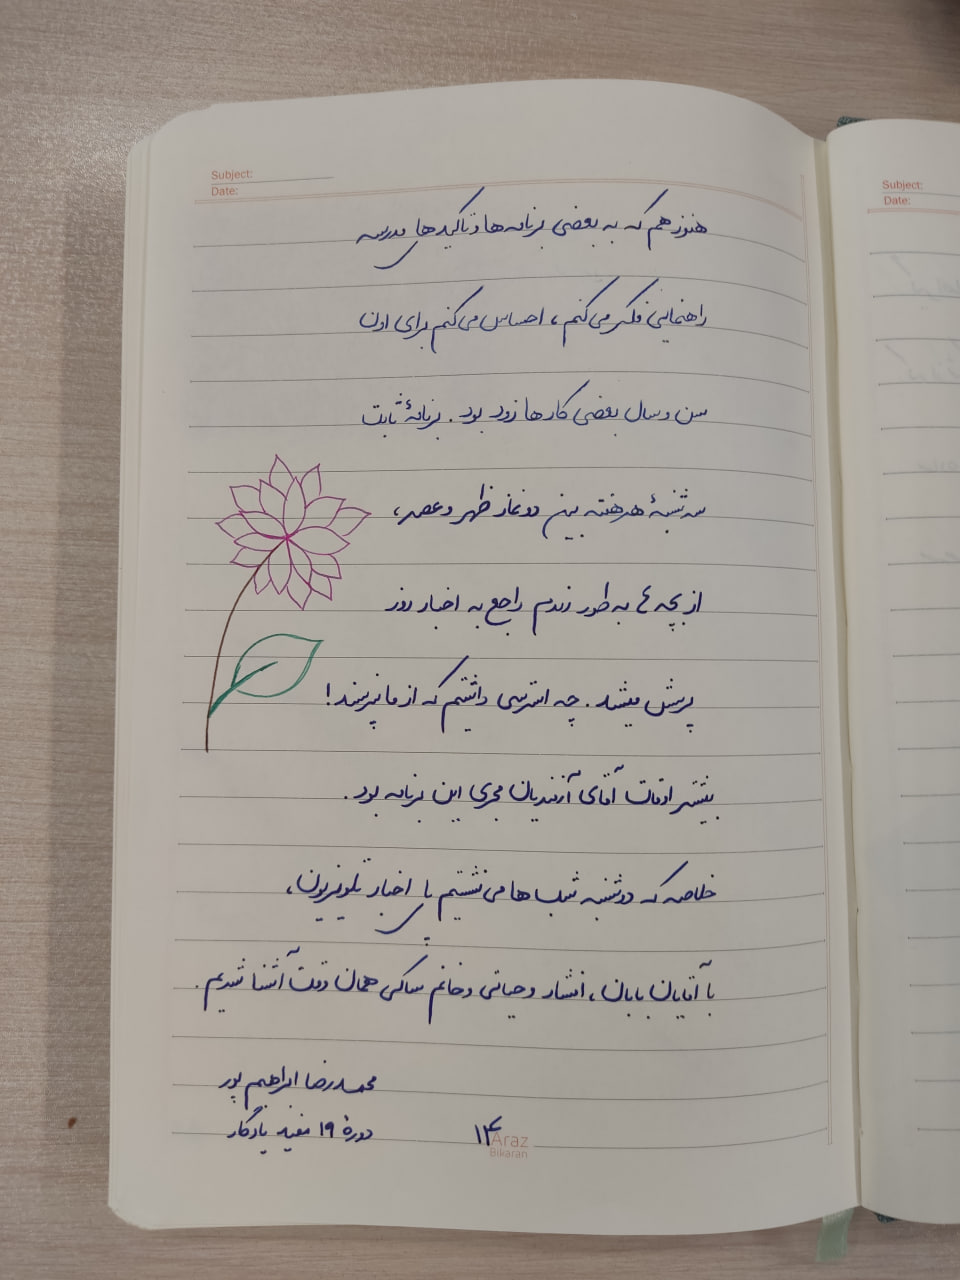 Subject:
Date:
هنوز هم که به بعضی برنامه‌ها و تاکیدهای مدرسه
راهنمایی فکر می‌کنم، احساس می‌کنم برای اون
سن و سال بعضی کارها زود بود. برنامهٔ ثابت
سه‌شنبهٔ هر هفته بین دو نماز ظهر و عصر،
از بچه‌ها به طور رندم راجع به اخبار روز
پرسش میشد. چه استرسی داشتیم که از ما نپرسند!
بیشتر اوقات آقای آزندیان مجری این برنامه بود.
خلاصه که دوشنبه شب‌ها می‌نشستیم پای اخبار تلویزیون،
با آقایان بابان، افشار و حیاتی و خانم ساکی همان وقت آشنا شدیم.
محمدرضا ابراهیم پور
دورهٔ ۱۹ مفید یادگار
۱۴
Araz
Bikaran
Subject:
Date: